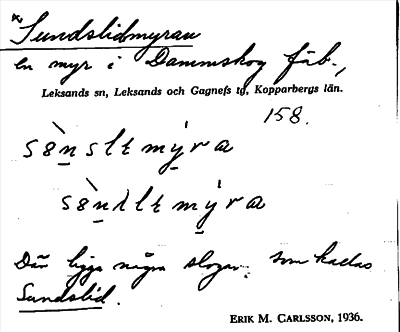 * Sundslidmyran
en myr i Dammskog fäb.,
Leksands sn, Leksands och Gagnefs tg, Kopparbergs län.
158.
Där ligga några slogar, som kallas
Sundslid.
ERIK M. CARLSSON, 1936.